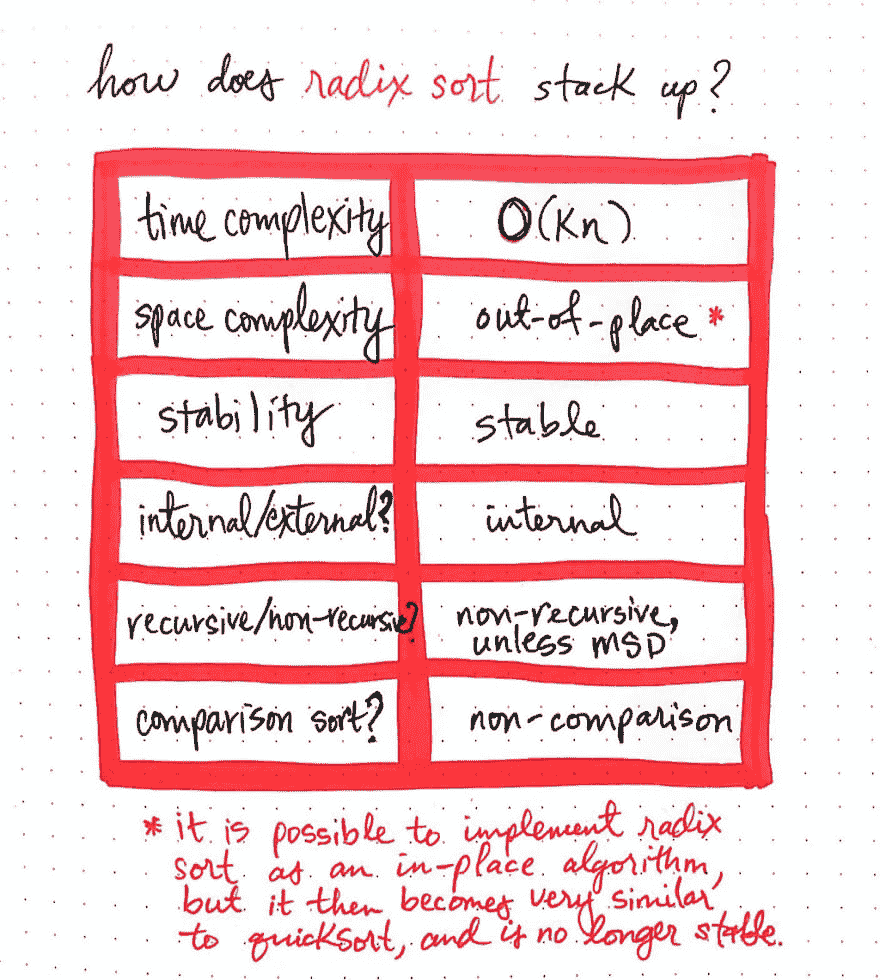 how does radix sort stack up?
time complexity O(Kn)
space complexity out-of-place *
stability stable
internal/external? internal
recursive/non-recursive? non-recursive,
unless MSD
comparison sort? non-comparison
* it is possible to implement radix
sort as an in-place algorithm,
but it then becomes very similar
to quicksort, and is no longer stable.